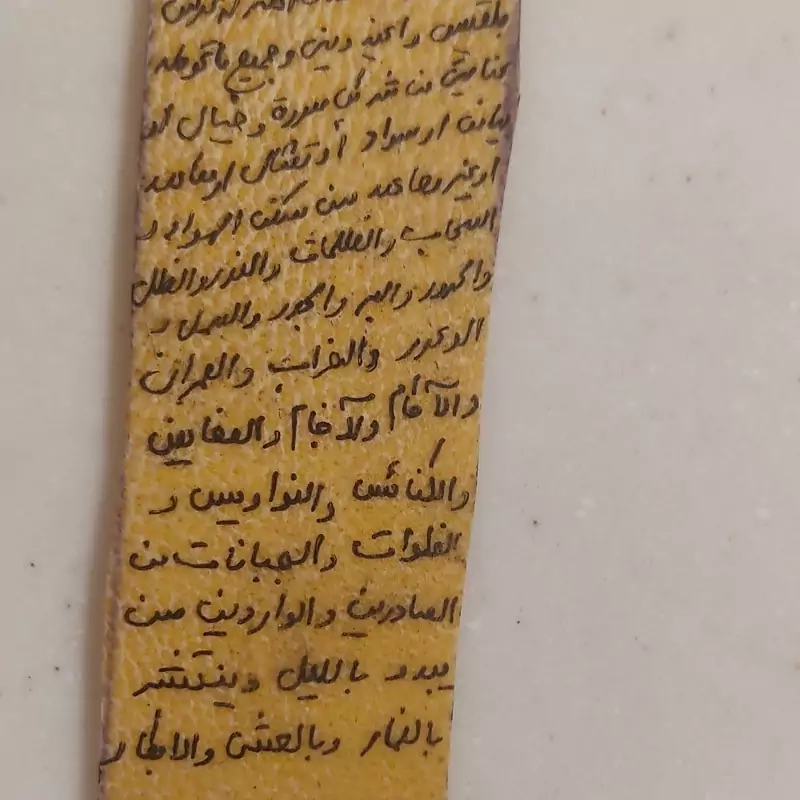 وجميع ما تحوطه
عنايتي من شر كل صورة وخيال او
بياض او سواد أو تمثال او معاهد
او غير معاهد ممن سكن الهواء و
السحاب والظلمات والنور والظل
والحرور والبر والبحور والسهل و
الوعور والخراب والعمران
والآكام والآجام والمغايض
والكنائس والنواويس و
الفلوات والجبانات من
الصادرين والواردين ممن
يبدو بالليل وينتشر
بالنهار وبالعشي والابكار